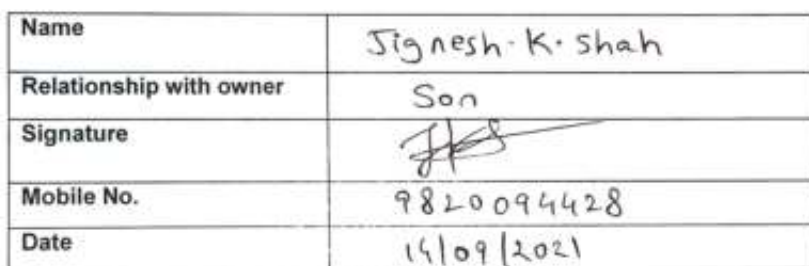 Name Jignesh. K. Shah
Relationship with owner Son
Signature
Mobile No. 9820094428
Date 14/09/2021